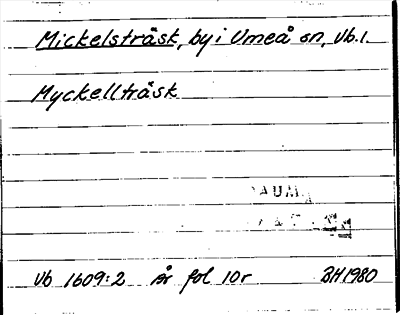 Mickelsträsk, by i Umeå sn, Vb.l.
Myckellträsk
Vb 1609:2 År fol 10r BH 1980